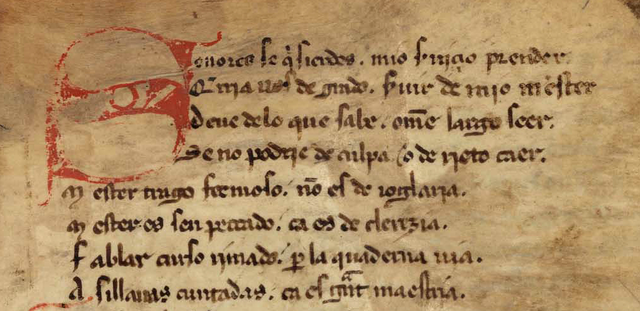 Senores se q̃sieredes. mio ẜuiçio prender.
Querria uos de grado. ẜuir de mio mẽster
Deue de lo que sabe. om̄e largo seer.
Se no podrie de culpa. o de rieto caer.
Mester trago fermoso. nõ es de ioglaria.
Mester es sen peccado. ca es de clerezia.
Fablar curso rimado. ꝑ la quaderna uia.
A sillauas cuntadas. ca es gͣnt maestria.